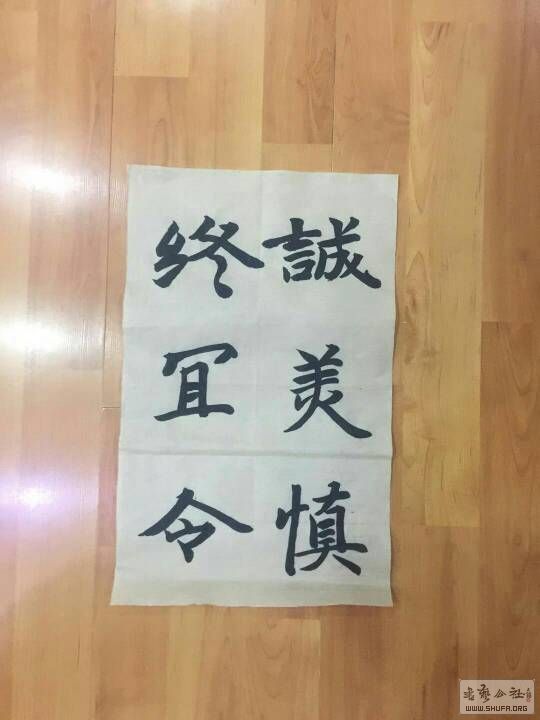 誠美慎
終冝令
书艺公社
WWW.SHUFA.ORG